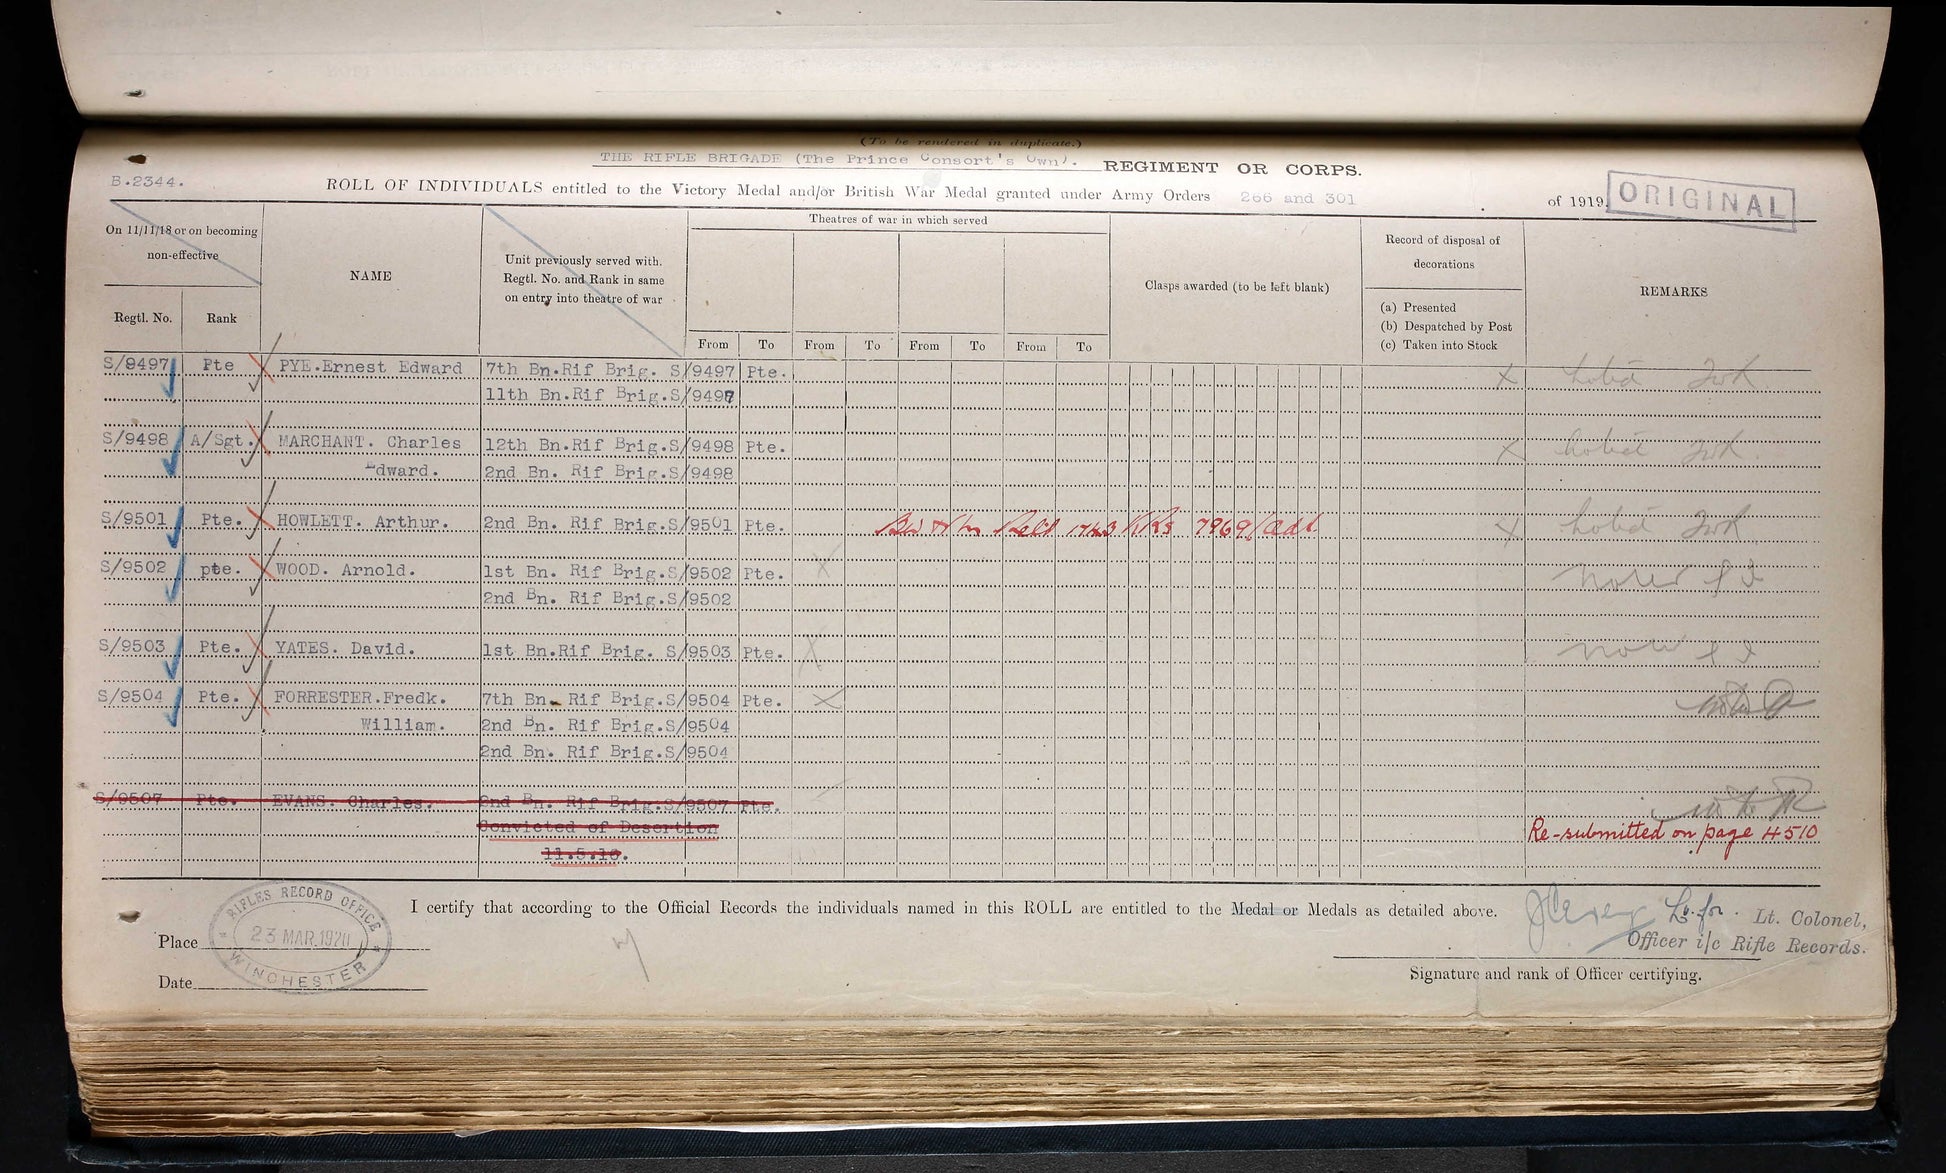 (To be rendered in duplicate.)
THE RIFLE BRIGADE (The Prince Consort's Own). REGIMENT OR CORPS.
B.2344.
ROLL OF INDIVIDUALS entitled to the Victory Medal and/or British War Medal granted under Army Orders 266 and 301 of 1919.
ORIGINAL
On 11/11/18 or on becoming non-effective
Regtl. No. Rank
NAME
Unit previously served with. Regtl. No. and Rank in same on entry into theatre of war
Theatres of war in which served
From To From To From To From To
Clasps awarded (to be left blank)
Record of disposal of decorations
(a) Presented
(b) Despatched by Post
(c) Taken into Stock
REMARKS
S/9497 Pte PYE.Ernest Edward 7th Bn.Rif Brig. S/9497 Pte.
11th Bn.Rif Brig.S/9497
S/9498 A/Sgt. MARCHANT. Charles 12th Bn.Rif Brig.S/9498 Pte.
Edward. 2nd Bn. Rif Brig.S/9498
S/9501 Pte. HOWLETT. Arthur. 2nd Bn. Rif Brig.S/9501 Pte. 7969/Adt
S/9502 pte. WOOD. Arnold. 1st Bn. Rif Brig.S/9502 Pte.
2nd Bn. Rif Brig.S/9502
S/9503 Pte. YATES. David. 1st Bn.Rif Brig. S/9503 Pte.
S/9504 Pte. FORRESTER.Fredk. 7th Bn. Rif Brig.S/9504 Pte.
William. 2nd Bn. Rif Brig.S/9504
2nd Bn. Rif Brig.S/9504
S/9507 Pte. EVANS. Charles. 2nd Bn. Rif Brig.S/9507 Pte.
Convicted of Desertion Re-submitted on page 4510
11.5.16.
I certify that according to the Official Records the individuals named in this ROLL are entitled to the Medal or Medals as detailed above.
Lt. for. Lt. Colonel,
Officer i/c Rifle Records.
Signature and rank of Officer certifying.
Place
Date
RIFLES RECORD OFFICE
23 MAR.1920
WINCHESTER